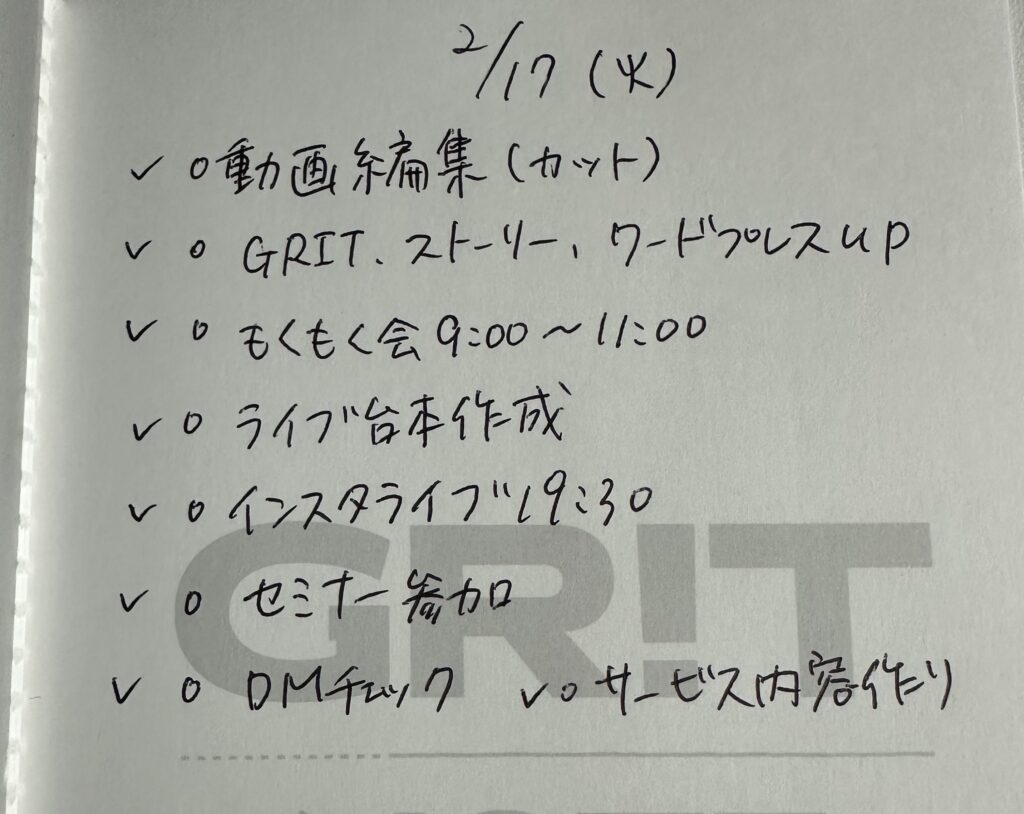 2/17 (火)
✓ ○ 動画編集(カット)
✓ ○ GRIT、ストーリー、ワードプレスup
✓ ○ もくもく会 9:00～11:00
✓ ○ ライブ台本作成
✓ ○ インスタライブ 19:30
GR!T
✓ ○ セミナー参加
✓ ○ DMチェック ✓ ○ サービス内容作り